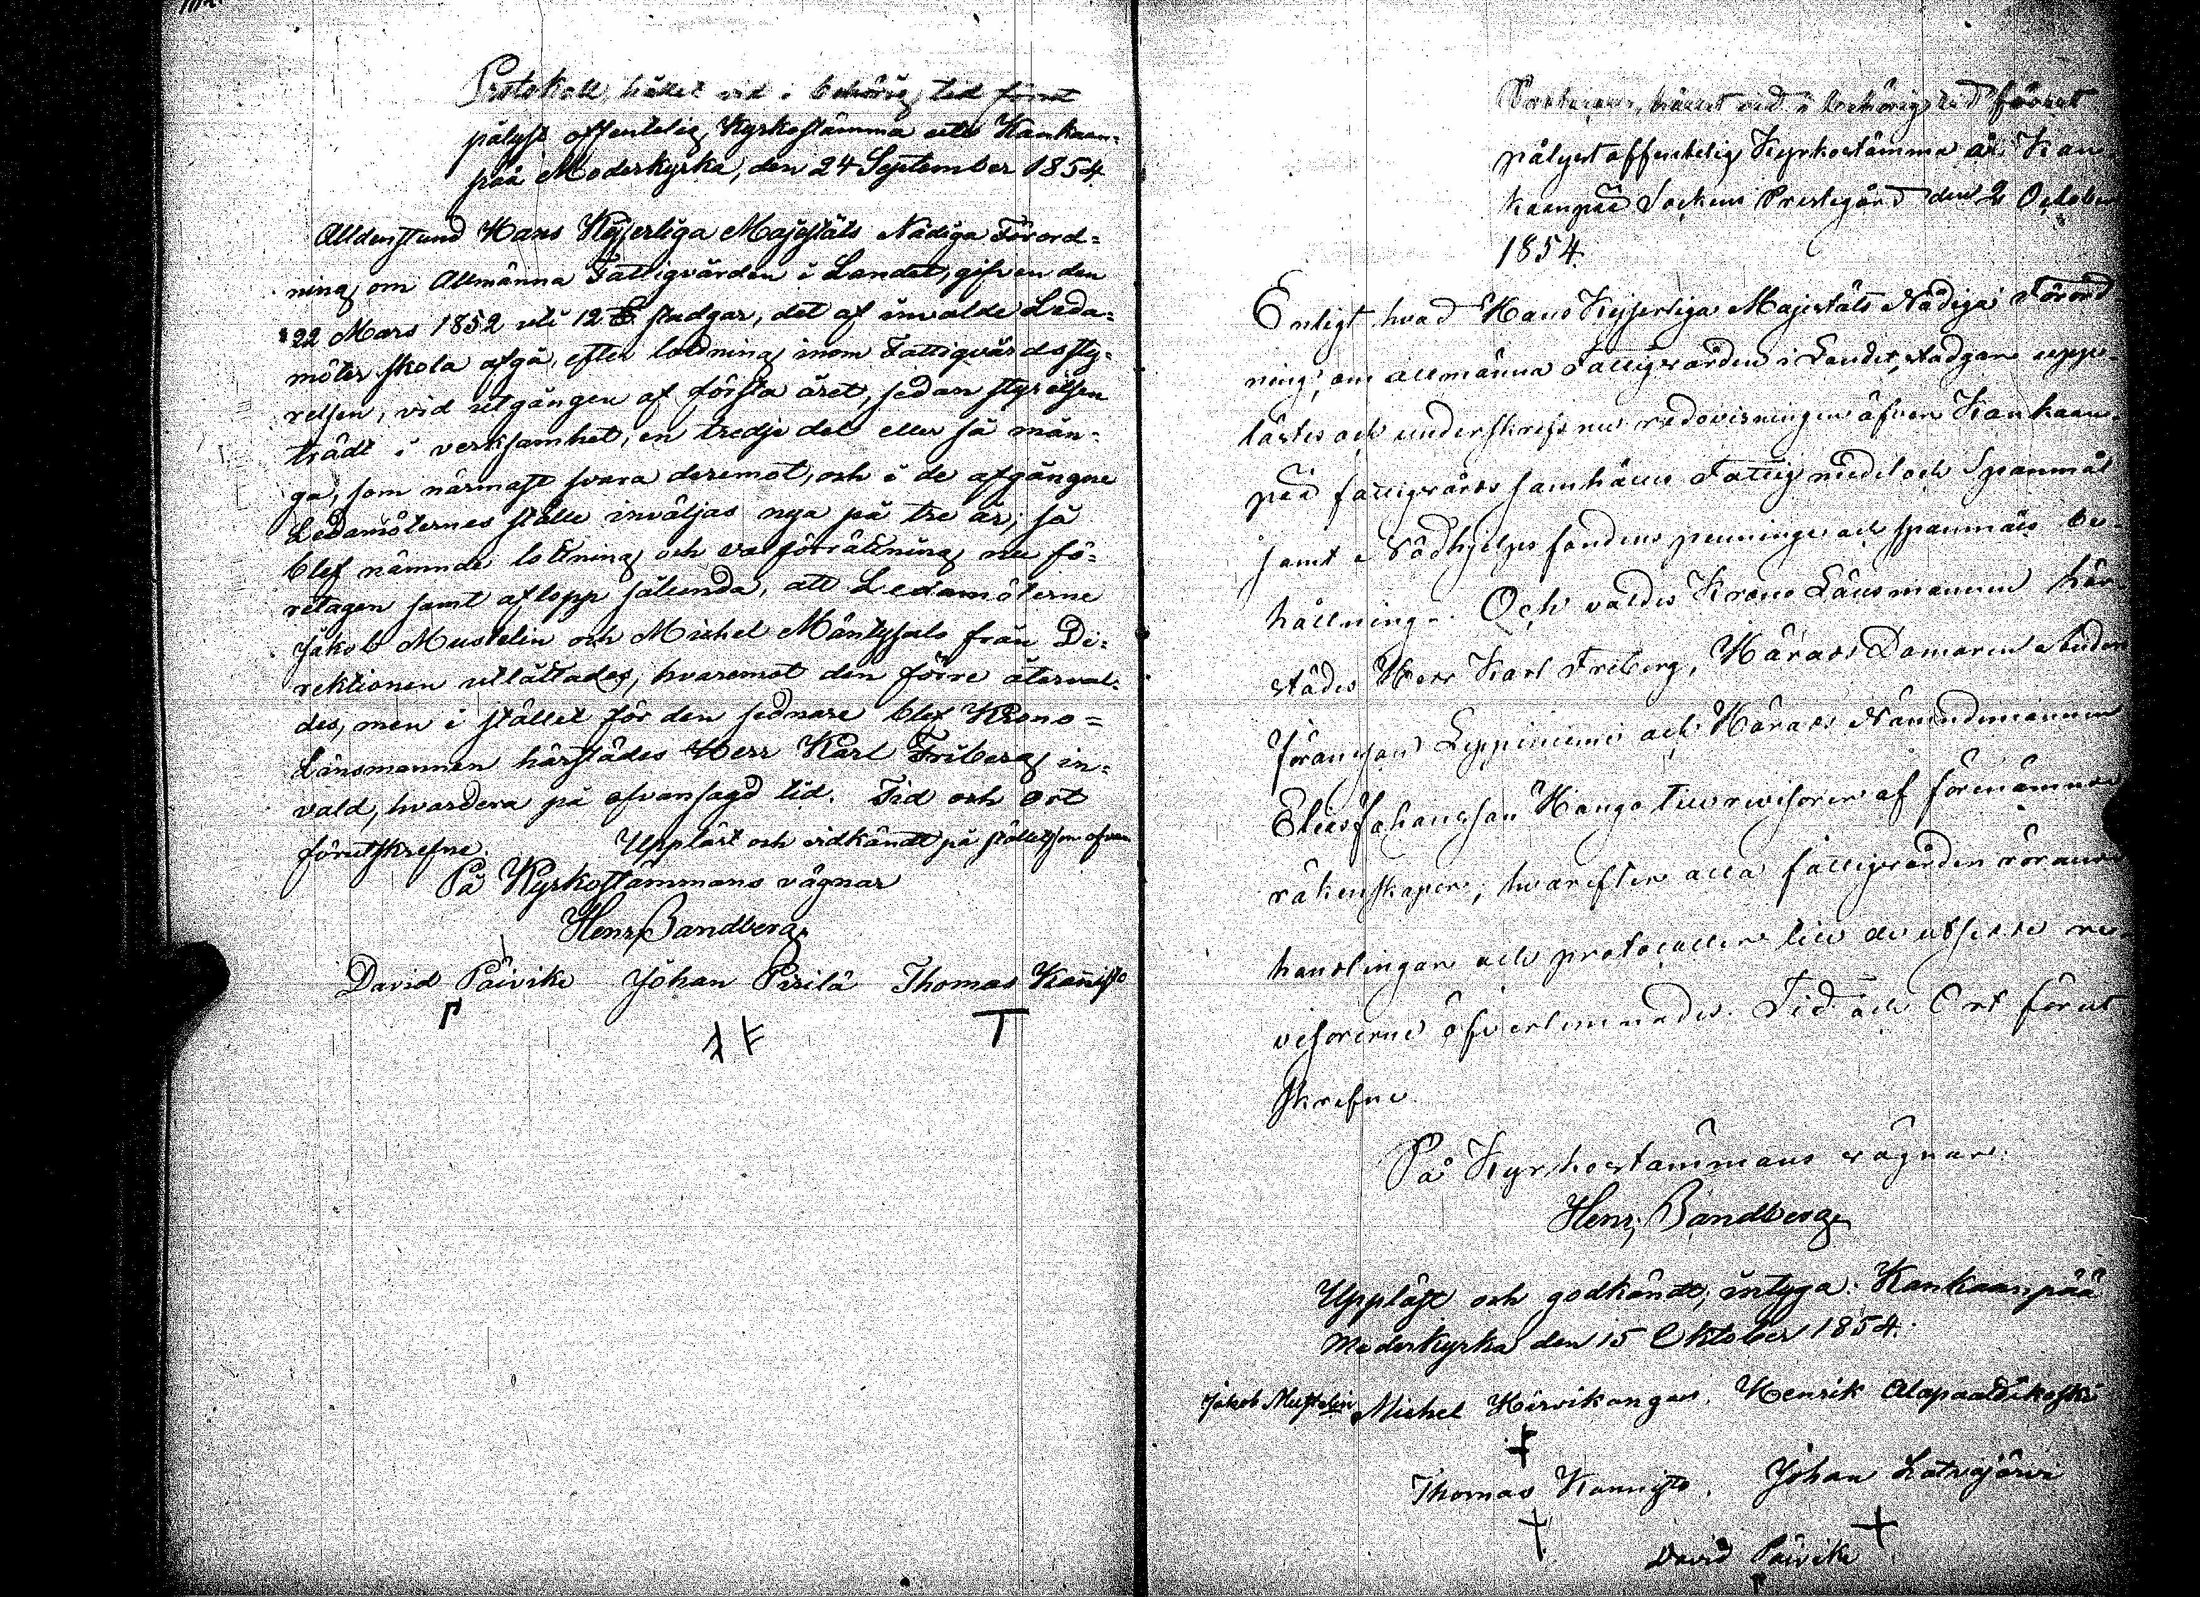 Protokoll, hållet vid i behörig tid förut
pålyst offentelig Kyrkostämma uti Kankaan-
pää Moderkyrka, den 24 September 1854.
Alldenstund Hans Kejserliga Majestäts Nådiga Förord-
ning om Allmänna Fattigvården i Landet, gifven den
22 Mars 1852 uti 12 § stadgar, det af invalde Leda-
möter skola afgå, efter lottning inom Fattigvårdssty-
relsen, vid utgången af första året, sedan styrelsen
trädt i verksamhet, en tredje del eller så mån-
ga, som närmast svara deremot, och i de afgångne
Ledamöternes ställe inväljas nya på tre år; så
blef nämnde lottning och valförrättning nu fö-
retagen samt aflopp sålunda, att Ledamöterne
Jakob Mustelin och Michel Mäntysalo från Di-
rektionen utlåttades, hvaremot den förre återval-
des, men i stället för den sednare blef Krono-
Länsmannen härstädes Herr Karl Friberg in-
vald, hvardera på ofvansagd tid. Tid och ort
förutskrefne. Uppläst och vidkändt på stället som ofvan
På Kyrkostämmans vägnar
Henr. Bandberg
David Päivike Johan Pirilä Thomas Kannisto
Protocoll, hållet vid i behörig tid förut
pålyst offentelig Kyrkostämma å Kan-
kaanpää Sockens Prestegård den 2 October
1854.
Enligt hvad Hans Kejserliga Majestäts Nådiga Förord-
ning, om allmänna Fattigvården i Landet, stadgar upp-
lästes och underskrefs nu redovisningen öfver Kankaan-
pää fattigvårds samhälles Fattig medel och Spanmål
samt Nödhjelps fondens penninge och spanmåls be-
hållning. Och valdes Krono Länsmannen här-
städes Herr Karl Friberg, Härads Domaren
Fransson Leppiniemi och Härads Nämndemannen
Elias Johansson Hongo till revisorer af förenämnde
räkenskaper, hvarefter alla fattigvården rörande
handlingar och protocoller till de utsedde re-
visorerne öfverlemnades. Tid och Ort förut-
skrefne
På Kyrkostämmans vägnar.
Henr. Bandberg
Uppläst och godkändt, intyga: Kankaanpää
Moderkyrka den 15 Oktober 1854.
Jakob Mustelin Michel Hirvikangas. Henrik Alapaattikoski
Thomas Kannisto. Johan Latvajärvi
David Päivike